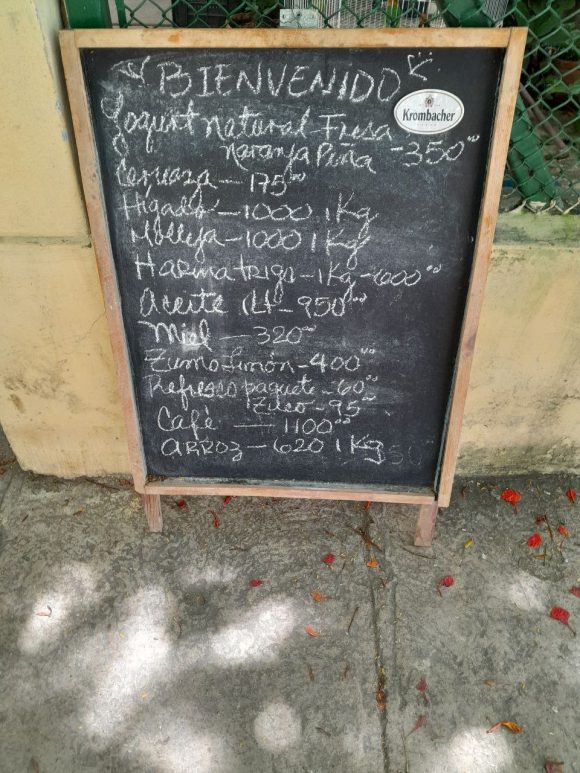 BIENVENIDO
Krombacher
Yogurt natural Fresa
Naranja Piña - 350⁰⁰
Cerveza — 175⁰⁰
Higado - 1000 1 Kg
Molleja - 1000 1 Kg
Harina trigo - 1 Kg - 600⁰⁰
Aceite 1Lt - 950⁰⁰
Miel — 320⁰⁰
Zumo Limón - 400⁰⁰
Refresco paquete - 60⁰⁰
Zuco - 95⁰⁰
Café — 1100⁰⁰
ARROZ — 620 1 Kg